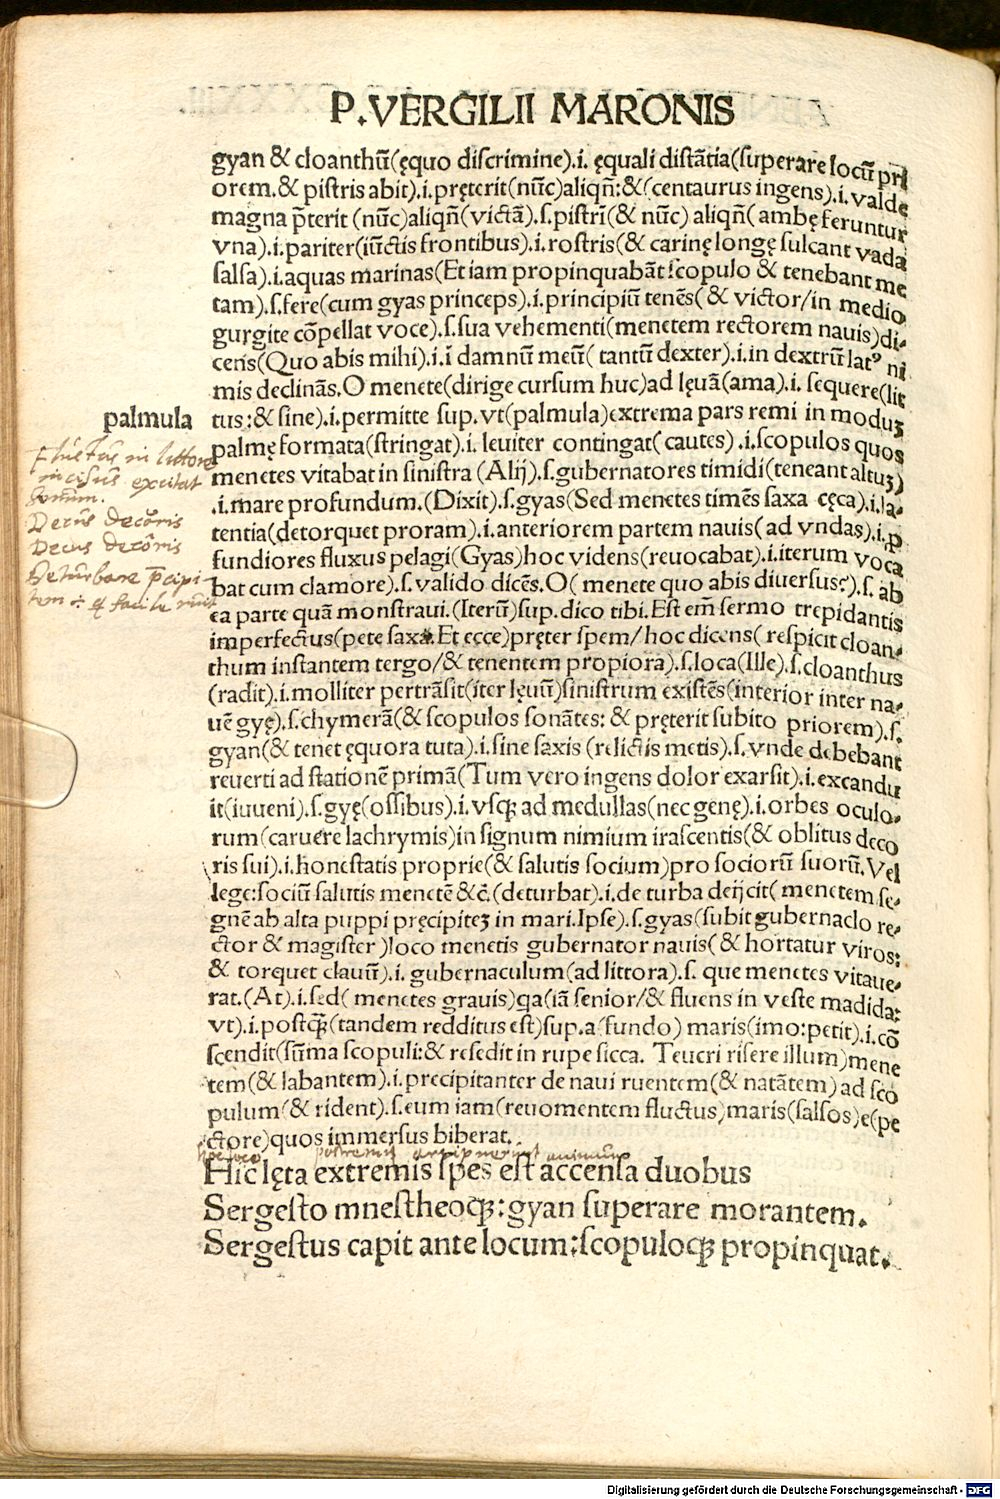 P.VERGILII MARONIS
gyan & cloanthū(ęquo discrimine).i. ęquali distātia(superare locū pri
orem.& pistris abit).i.pręterit(nūc)aliqñ:&(centaurus ingens).i.valde
magna p̄terit (nūc)aliqñ(victā).s.pistrī(& nūc) aliqñ(ambę feruntur
vna).i.pariter(iūctis frontibus).i.rostris(& carinę longę sulcant vada
salsa).i.aquas marinas(Et iam propinquabāt scopulo & tenebant me
tam).s.fere(cum gyas princeps).i.principiū tenēs(& victor/in medio
gurgite cōpellat voce).s.sua vehementi(menetem rectorem nauis)di⸗
cens(Quo abis mihi).i.ī damnū meū( tantū dexter).i.in dextrū latꝰ ni
mis declinās.O menete(dirige cursum huc)ad lęuā(ama).i. sequere(lit
palmula
tus:& sine).i.permitte sup. vt(palmula)extrema pars remi in moduꝫ
palmę formata(stringat).i. leuiter contingat(cautes) .i.scopulos quos
menetes vitabat in sinistra (Alij).s.gubernatores timidi(teneant altuꝫ)
.i.mare profundum.(Dixit).s.gyas(Sed menetes timēs saxa cęca).i.la⸗
tentia(detorquet proram).i.anteriorem partem nauis(ad vndas).i.ꝓ
fundiores fluxus pelagi(Gyas)hoc videns(reuocabat).i.iterum voca
bat cum clamore).s.valido dicēs.O( menete quo abis diuersus?).s. ab
ea parte quā monstraui.(Iterū)sup.dico tibi.Est em̄ sermo trepidantis
imperfectus(pete saxa.Et ecce)pręter spem/hoc dicens(respicit cloan⸗
thum instantem tergo/& tenentem propiora).s.loca(Ille).s.cloanthus
(radit).i.molliter pertrāsit(iter lęuū)sinistrum existēs(interior inter na⸗
uē gyę).s.chymerā(& scopulos sonātes: & pręterit subito priorem).s.
gyan(& tenet ęquora tuta).i.sine saxis (relictis metis).s.vnde debebant
reuerti ad stationē primā(Tum vero ingens dolor exarsit).i.excandu
it(iuueni).s.gyę(ossibus).i.vsqꝫ ad medullas(nec genę).i.orbes oculo⸗
rum(caruere lachrymis)in signum nimium irascentis(& oblitus deco
ris sui).i.honestatis proprie(& salutis socium)pro sociorū suorū.Vel
lege:sociū salutis menetē &c̄.(deturbat).i.de turba deijcit( menetem se⸗
gnē ab alta puppi pręcipiteꝫ in mari.Ipse).s.gyas(subit gubernaclo re⸗
ctor & magister)loco menetis gubernator nauis(& hortatur viros:
& torquet clauū).i. gubernaculum(ad littora).s. que menetes vitaue⸗
rat.(At).i.sed( menetes grauis)qa(iā senior/& fluens in veste madida:
vt).i.postqꝫ(tandem redditus est)sup.a(fundo) maris(imo:petit).i.cō
scendit(sūma scopuli:& resedit in rupe sicca. Teucri risere illum)mene
tem(& labantem).i.precipitanter de naui ruentem(& natātem)ad sco
pulum(& rident).s.eum iam(reuomentem fluctus)maris(salsos)e(pe
ctore)quos immersus biberat.
Fluctus in littore
incisus excitat
sonum.
Decus decoris
Decus decōris
Deturbare p̄cipi-
hoc loco postremis animum
Hic lęta extremis spes est accensa duobus
Sergesto mnestheoqꝫ:gyan superare morantem.
Sergestus capit ante locum:scopuloqꝫ propinquat.
Digitalisierung gefördert durch die Deutsche Forschungsgemeinschaft - DFG